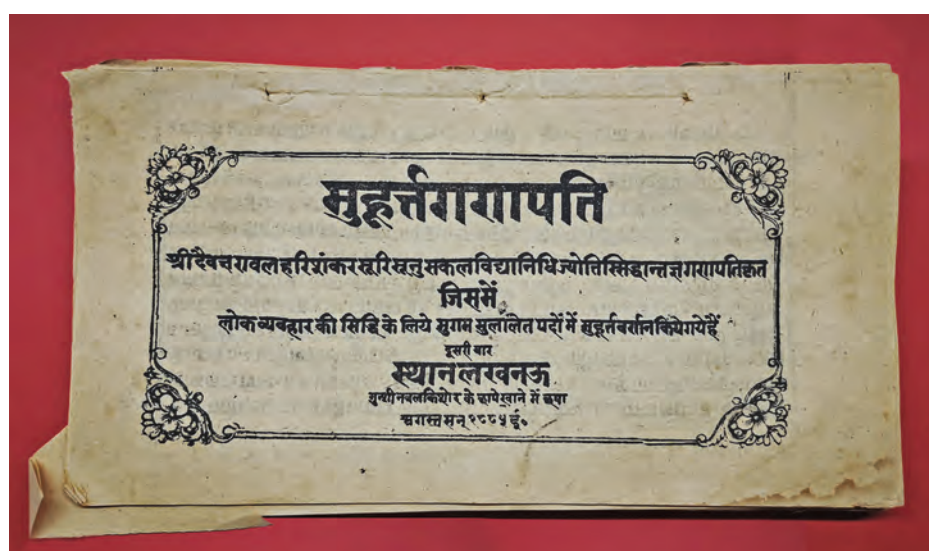 मुहूर्त्तगणपति
श्रीदैवज्ञरावलहरिशंकरसूरिसूनुसकलविद्यानिधिज्योतिस्सिद्धान्तज्ञगणपतिकृत
जिसमें
लोकव्यवहार की सिद्धि के लिये सुगम सुललित पदों में मुहूर्तवर्णन कियेगये हैं
दूसरी बार
स्थान लखनऊ
मुन्शीनवलकिशोर के छापेख़ाने में छपा
अगस्तसन् १८८५ ई०